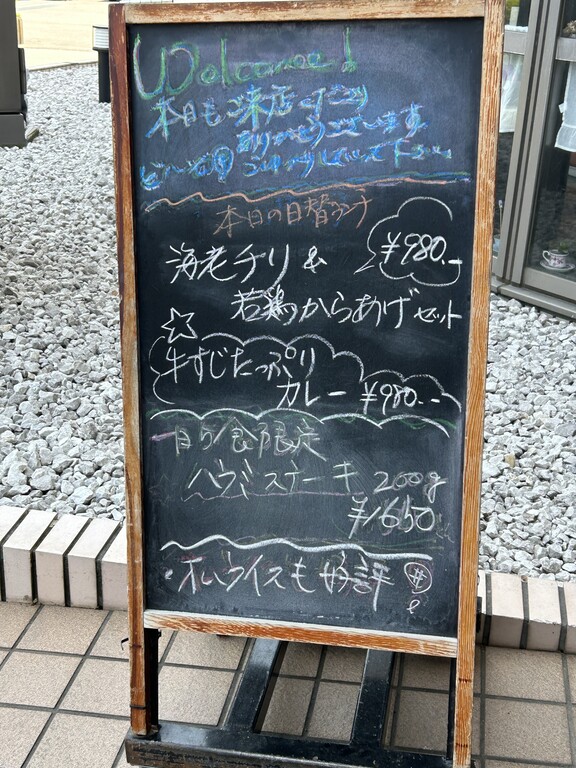 Welcome!
本日もご来店下さり
ありがとうございます
どうぞ ごゆっくりしていって下さい
本日の日替ランチ
海老チリ & ¥980.-
若鶏からあげセット
☆牛すじたっぷり
カレー ¥980.-
食限定
ハラミステーキ 200g
¥1650
・オムライスも好評